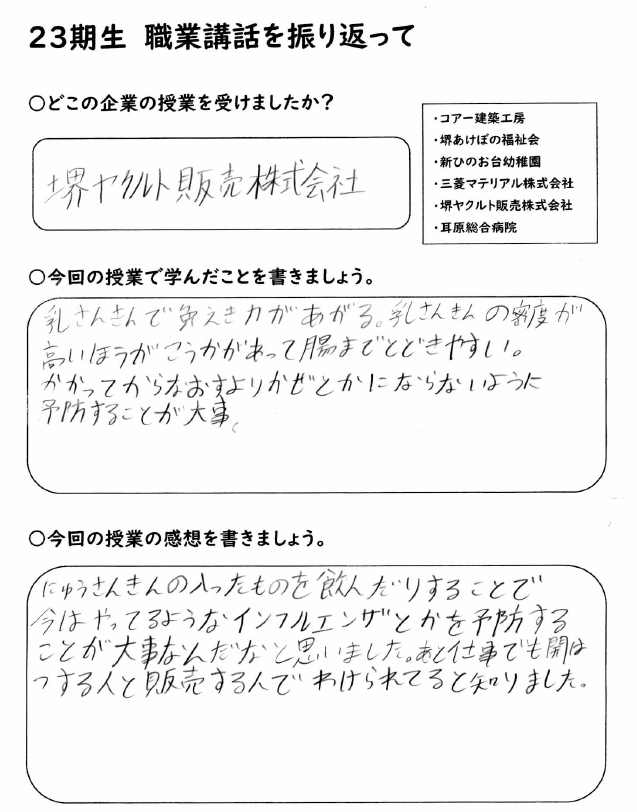 23期生 職業講話を振り返って
○どこの企業の授業を受けましたか？
・コアー建築工房
・堺あけぼの福祉会
・新ひのお台幼稚園
・三菱マテリアル株式会社
・堺ヤクルト販売株式会社
・耳原総合病院
堺ヤクルト販売株式会社
○今回の授業で学んだことを書きましょう。
乳さんきんで免えき力があがる。乳さんきんの密度が
高いほうがこうかがあって腸までとどきやすい。
かかってからなおすよりかぜとかにならないように
予防することが大事。
○今回の授業の感想を書きましょう。
にゅうさんきんの入ったものを飲んだりすることで
今はやってるようなインフルエンザとかを予防する
ことが大事なんだなと思いました。あと仕事でも開は
つする人と販売する人でわけられてると知りました。